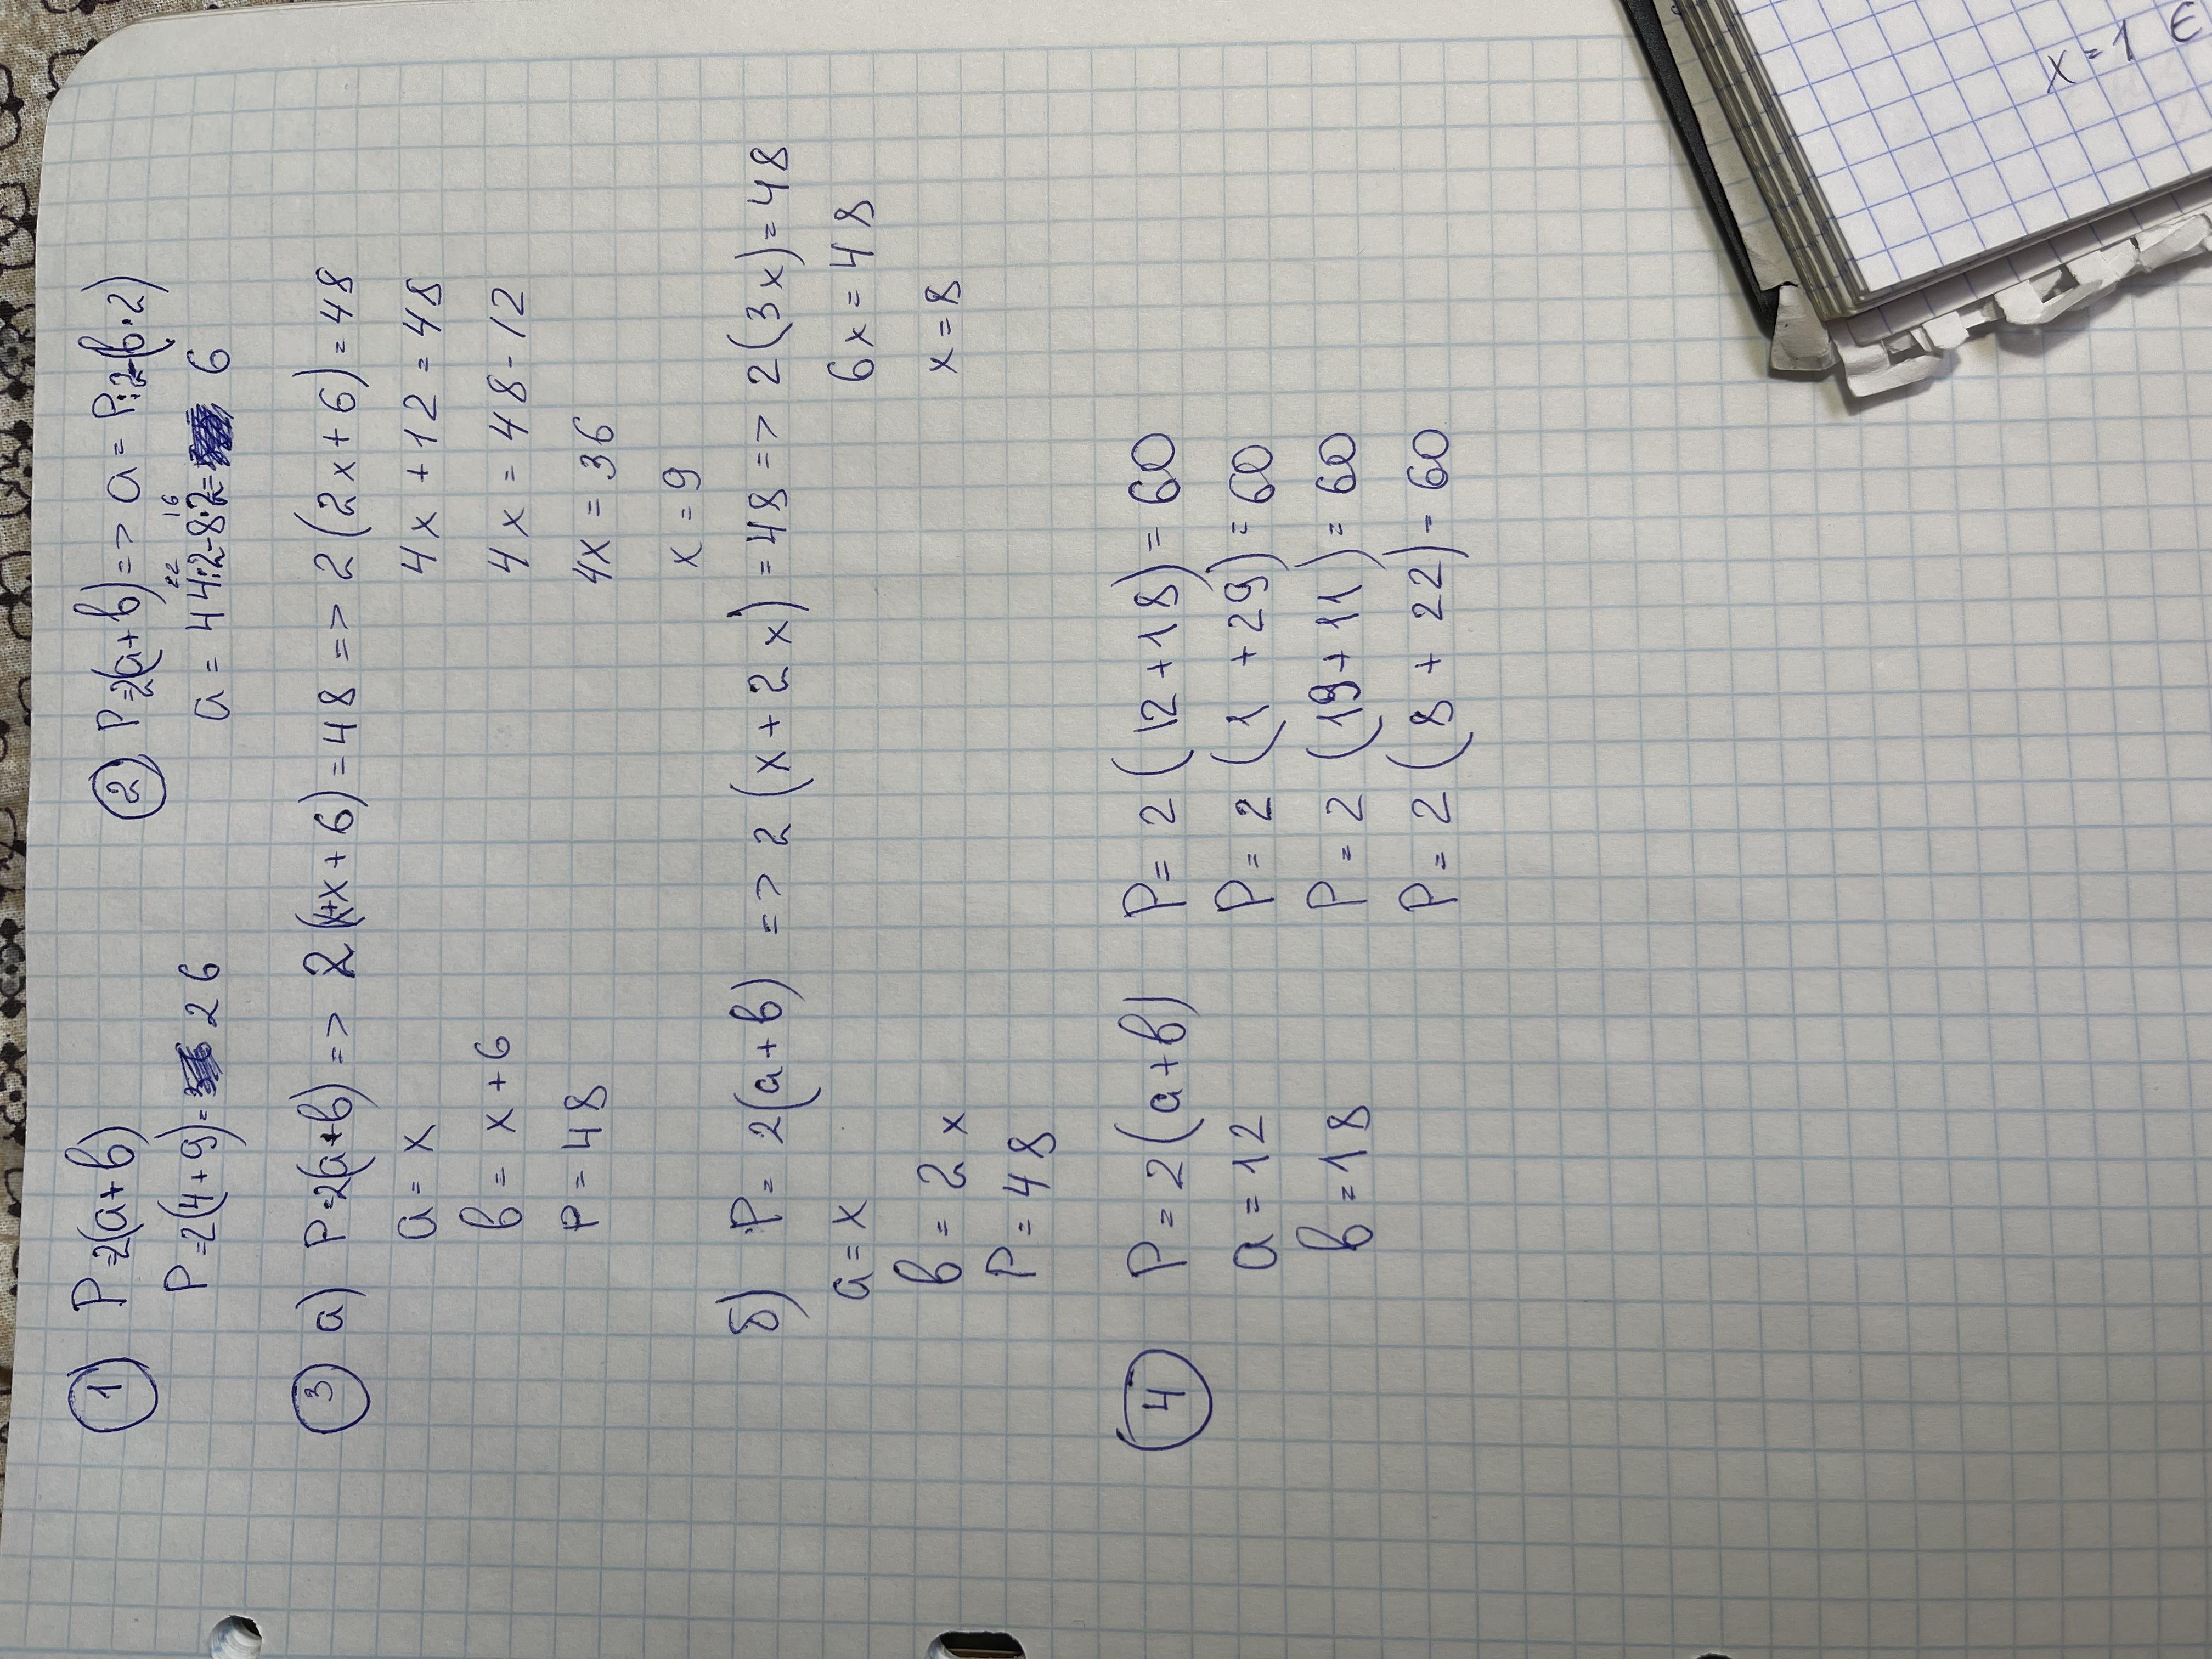 ① P=2(a+b)
P=2(4+9)=26
② P=2(a+b)=> a=P:2-(b·2)
22 16
a=44:2-8·2=6
③ а) P=2(a+b) => 2(x+x+6)=48 => 2(2x+6)=48
a=x
4x+12=48
b=x+6
4x=48-12
P=48
4x=36
x=9
б) P=2(a+b) => 2(x+2x)=48 => 2(3x)=48
a=x
6x=48
b=2x
x=8
P=48
④ P=2(a+b) P=2(12+18)=60
a=12 P=2(1+29)=60
b=18 P=2(19+11)=60
P=2(8+22)-60
x=1 €